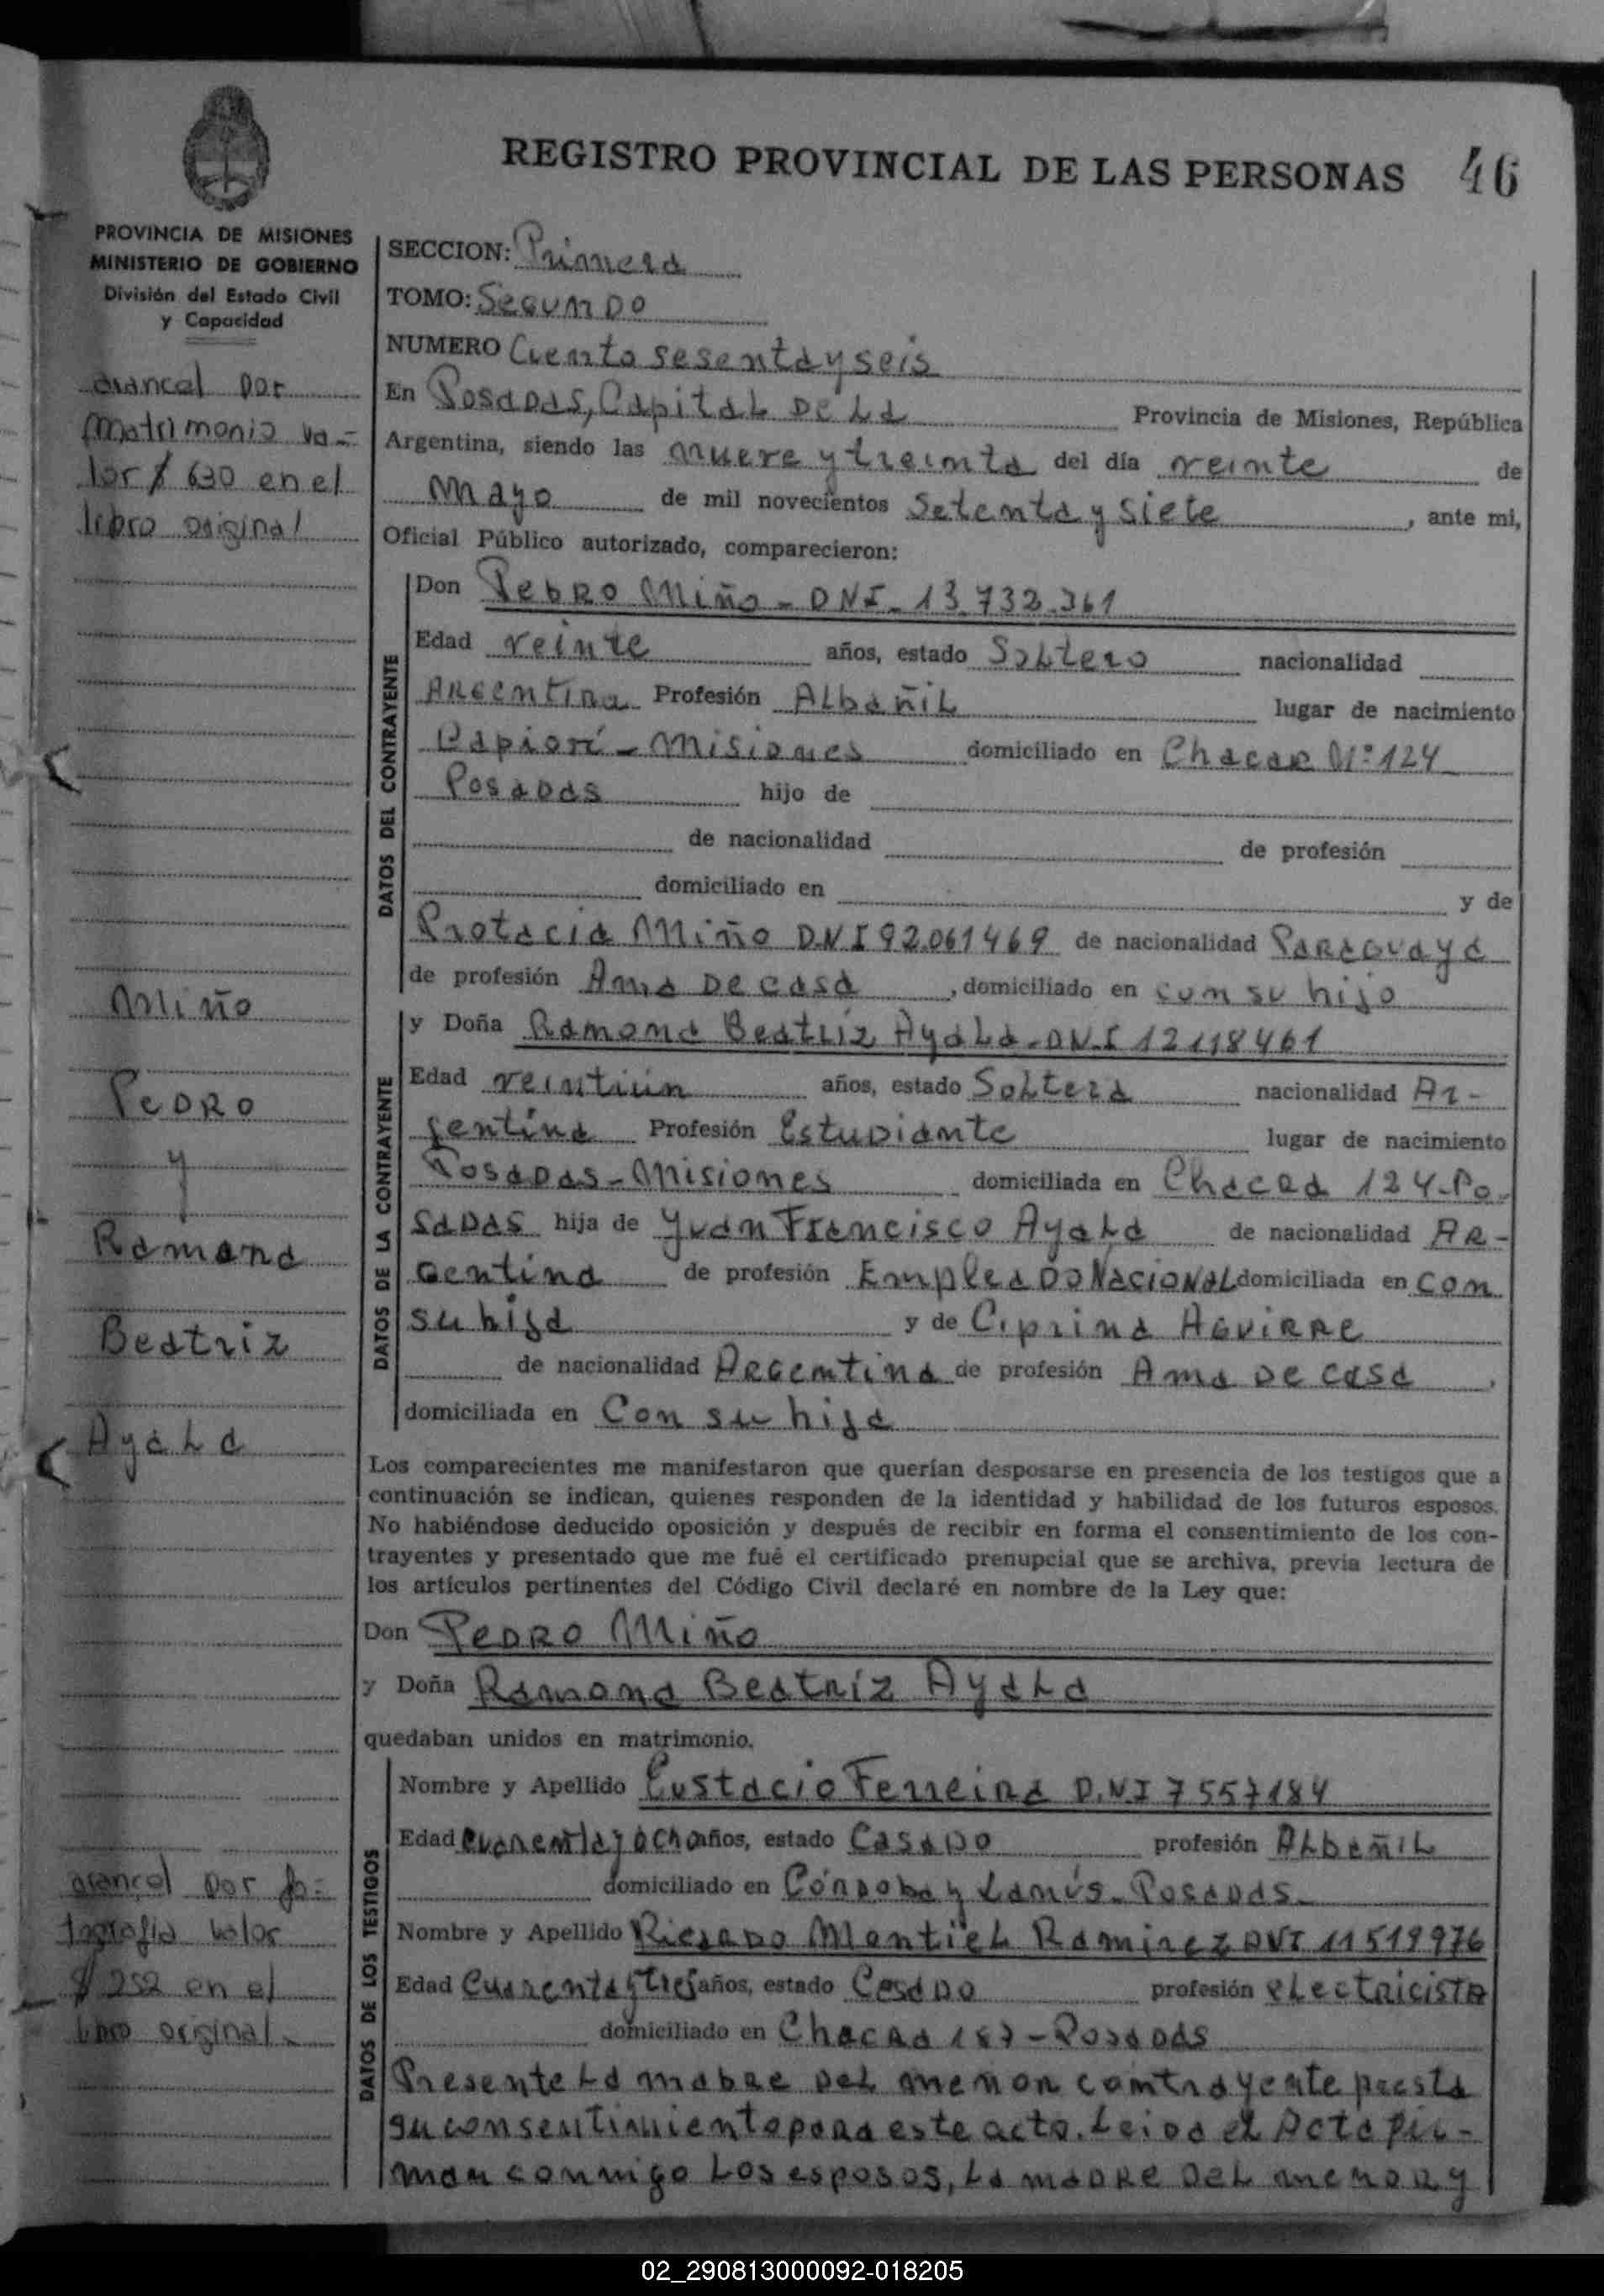 REGISTRO PROVINCIAL DE LAS PERSONAS 46
PROVINCIA DE MISIONES
MINISTERIO DE GOBIERNO
División del Estado Civil
y Capacidad
arancel por
matrimonio va=
lor $ 630 en el
libro original
Miño
Pedro
y
Ramona
Beatriz
Ayala
arancel por fo=
tografia valor
$ 252 en el
libro original.
SECCION: Primera
TOMO: Segundo
NUMERO Ciento sesenta y seis
En Posadas, Capital De La Provincia de Misiones, República
Argentina, siendo las nueve y treinta del día veinte de
Mayo de mil novecientos Setenta y siete, ante mi,
Oficial Público autorizado, comparecieron:
DATOS DEL CONTRAYENTE
Don Pedro Miño - DNI - 13.732.361
Edad veinte años, estado Soltero nacionalidad
Argentina Profesión Albañil lugar de nacimiento
- Misiones domiciliado en Chacar Nº 124
Posadas hijo de
de nacionalidad de profesión
domiciliado en y de
Protacia Miño D.N.I 92.061469 de nacionalidad Paraguaya
de profesión Ama De casa, domiciliado en con su hijo
DATOS DE LA CONTRAYENTE
y Doña Ramona Beatriz Ayala - DN.I 12118461
Edad veintiún años, estado Soltera nacionalidad Ar-
gentina Profesión Estudiante lugar de nacimiento
Posadas - Misiones domiciliada en Chacra 124-Po-
sadas hija de Juan Francisco Ayala de nacionalidad Ar-
gentina de profesión Empleado Nacional domiciliada en con
su hija y de Ciprina Aguirre
de nacionalidad Argentina de profesión Ama De casa,
domiciliada en Con su hija
Los comparecientes me manifestaron que querían desposarse en presencia de los testigos que a
continuación se indican, quienes responden de la identidad y habilidad de los futuros esposos.
No habiéndose deducido oposición y después de recibir en forma el consentimiento de los con-
trayentes y presentado que me fué el certificado prenupcial que se archiva, previa lectura de
los artículos pertinentes del Código Civil declaré en nombre de la Ley que:
Don Pedro Miño
y Doña Ramona Beatríz Ayala
quedaban unidos en matrimonio.
DATOS DE LOS TESTIGOS
Nombre y Apellido Eustacio Ferreira D.N.I 7557184
Edad cuarenta y ocho años, estado Casado profesión Albañil
domiciliado en Córdoba y Lanús - Posadas.
Nombre y Apellido Ricardo Montiel Ramirez DNI 11519976
Edad Cuarenta y tres años, estado Casado profesión electricista
domiciliado en Chacra 187 - Posadas
Presente la madre del menor contrayente presta
su consentimiento para este acto. Leida el Acta fir-
man conmigo los esposos, la madre del menor y
02_290813000092-018205